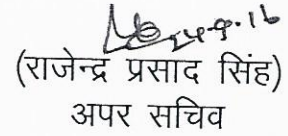 24-9-16
(राजेन्द्र प्रसाद सिंह)
अपर सचिव